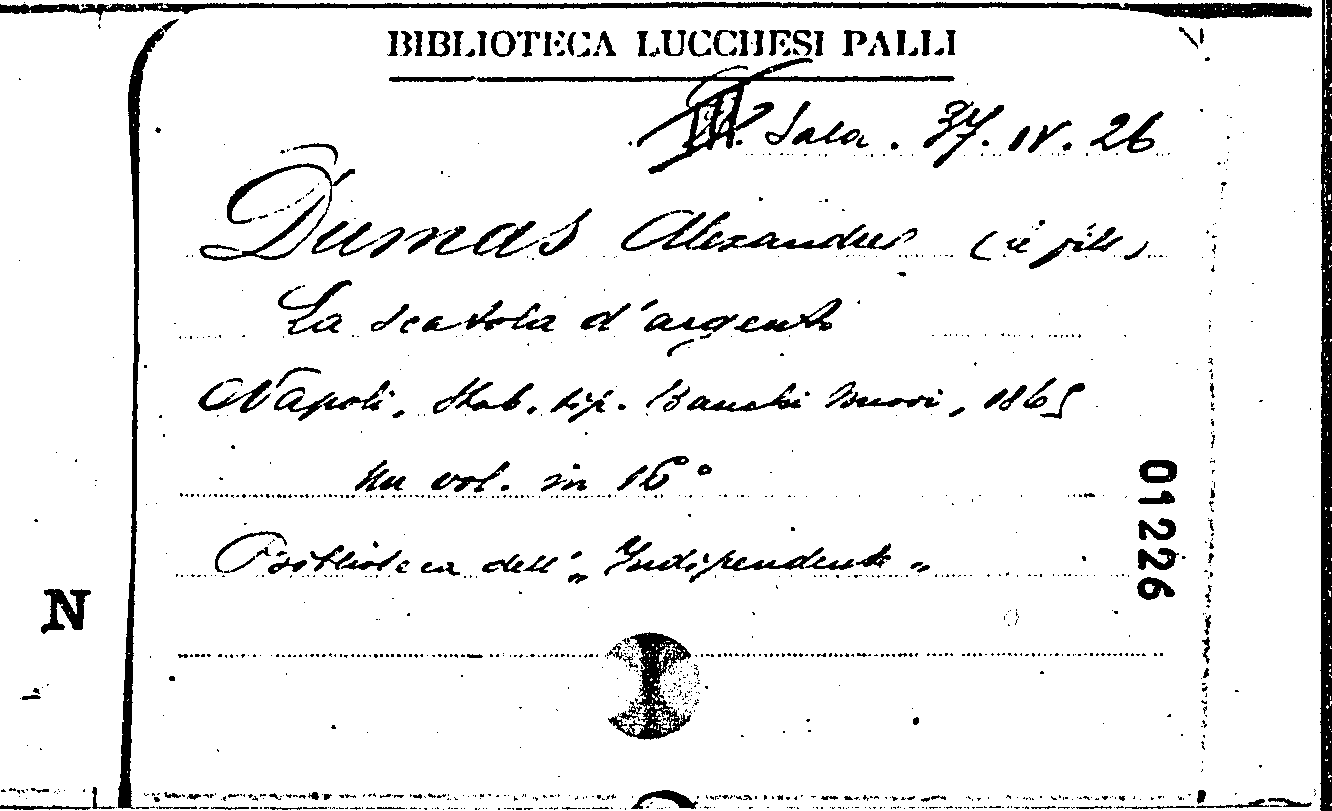 BIBLIOTECA LUCCHESI PALLI
Sala. 37. IV. 26
Dumas Alexandre (le fils)
La scatola d'argento
Napoli, Stab. tip. Banchi Nuovi, 1865
Un vol. in 16°
Biblioteca dell' „Indipendente„
01226
N